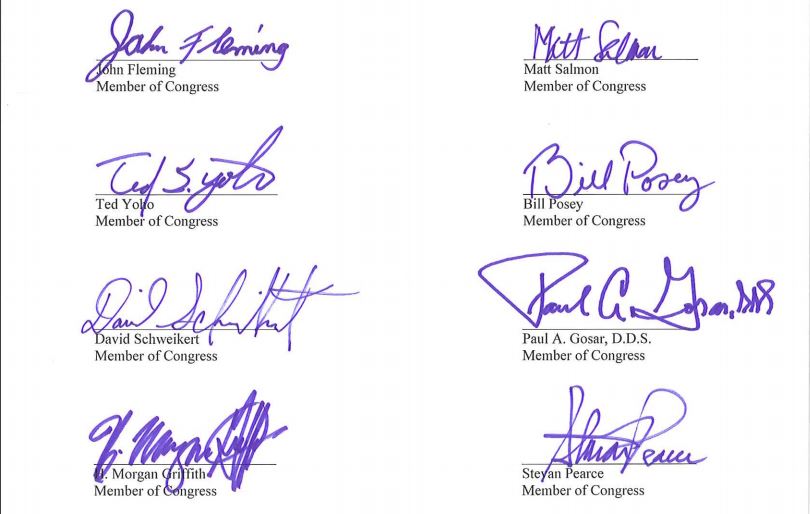 John Fleming
John Fleming
Member of Congress
Matt Salmon
Matt Salmon
Member of Congress
Ted S. Yoho
Ted Yoho
Member of Congress
Bill Posey
Bill Posey
Member of Congress
David Schweikert
David Schweikert
Member of Congress
Paul A. Gosar, DDS
Paul A. Gosar, D.D.S.
Member of Congress
H. Morgan Griffith
H. Morgan Griffith
Member of Congress
Stevan Pearce
Stevan Pearce
Member of Congress